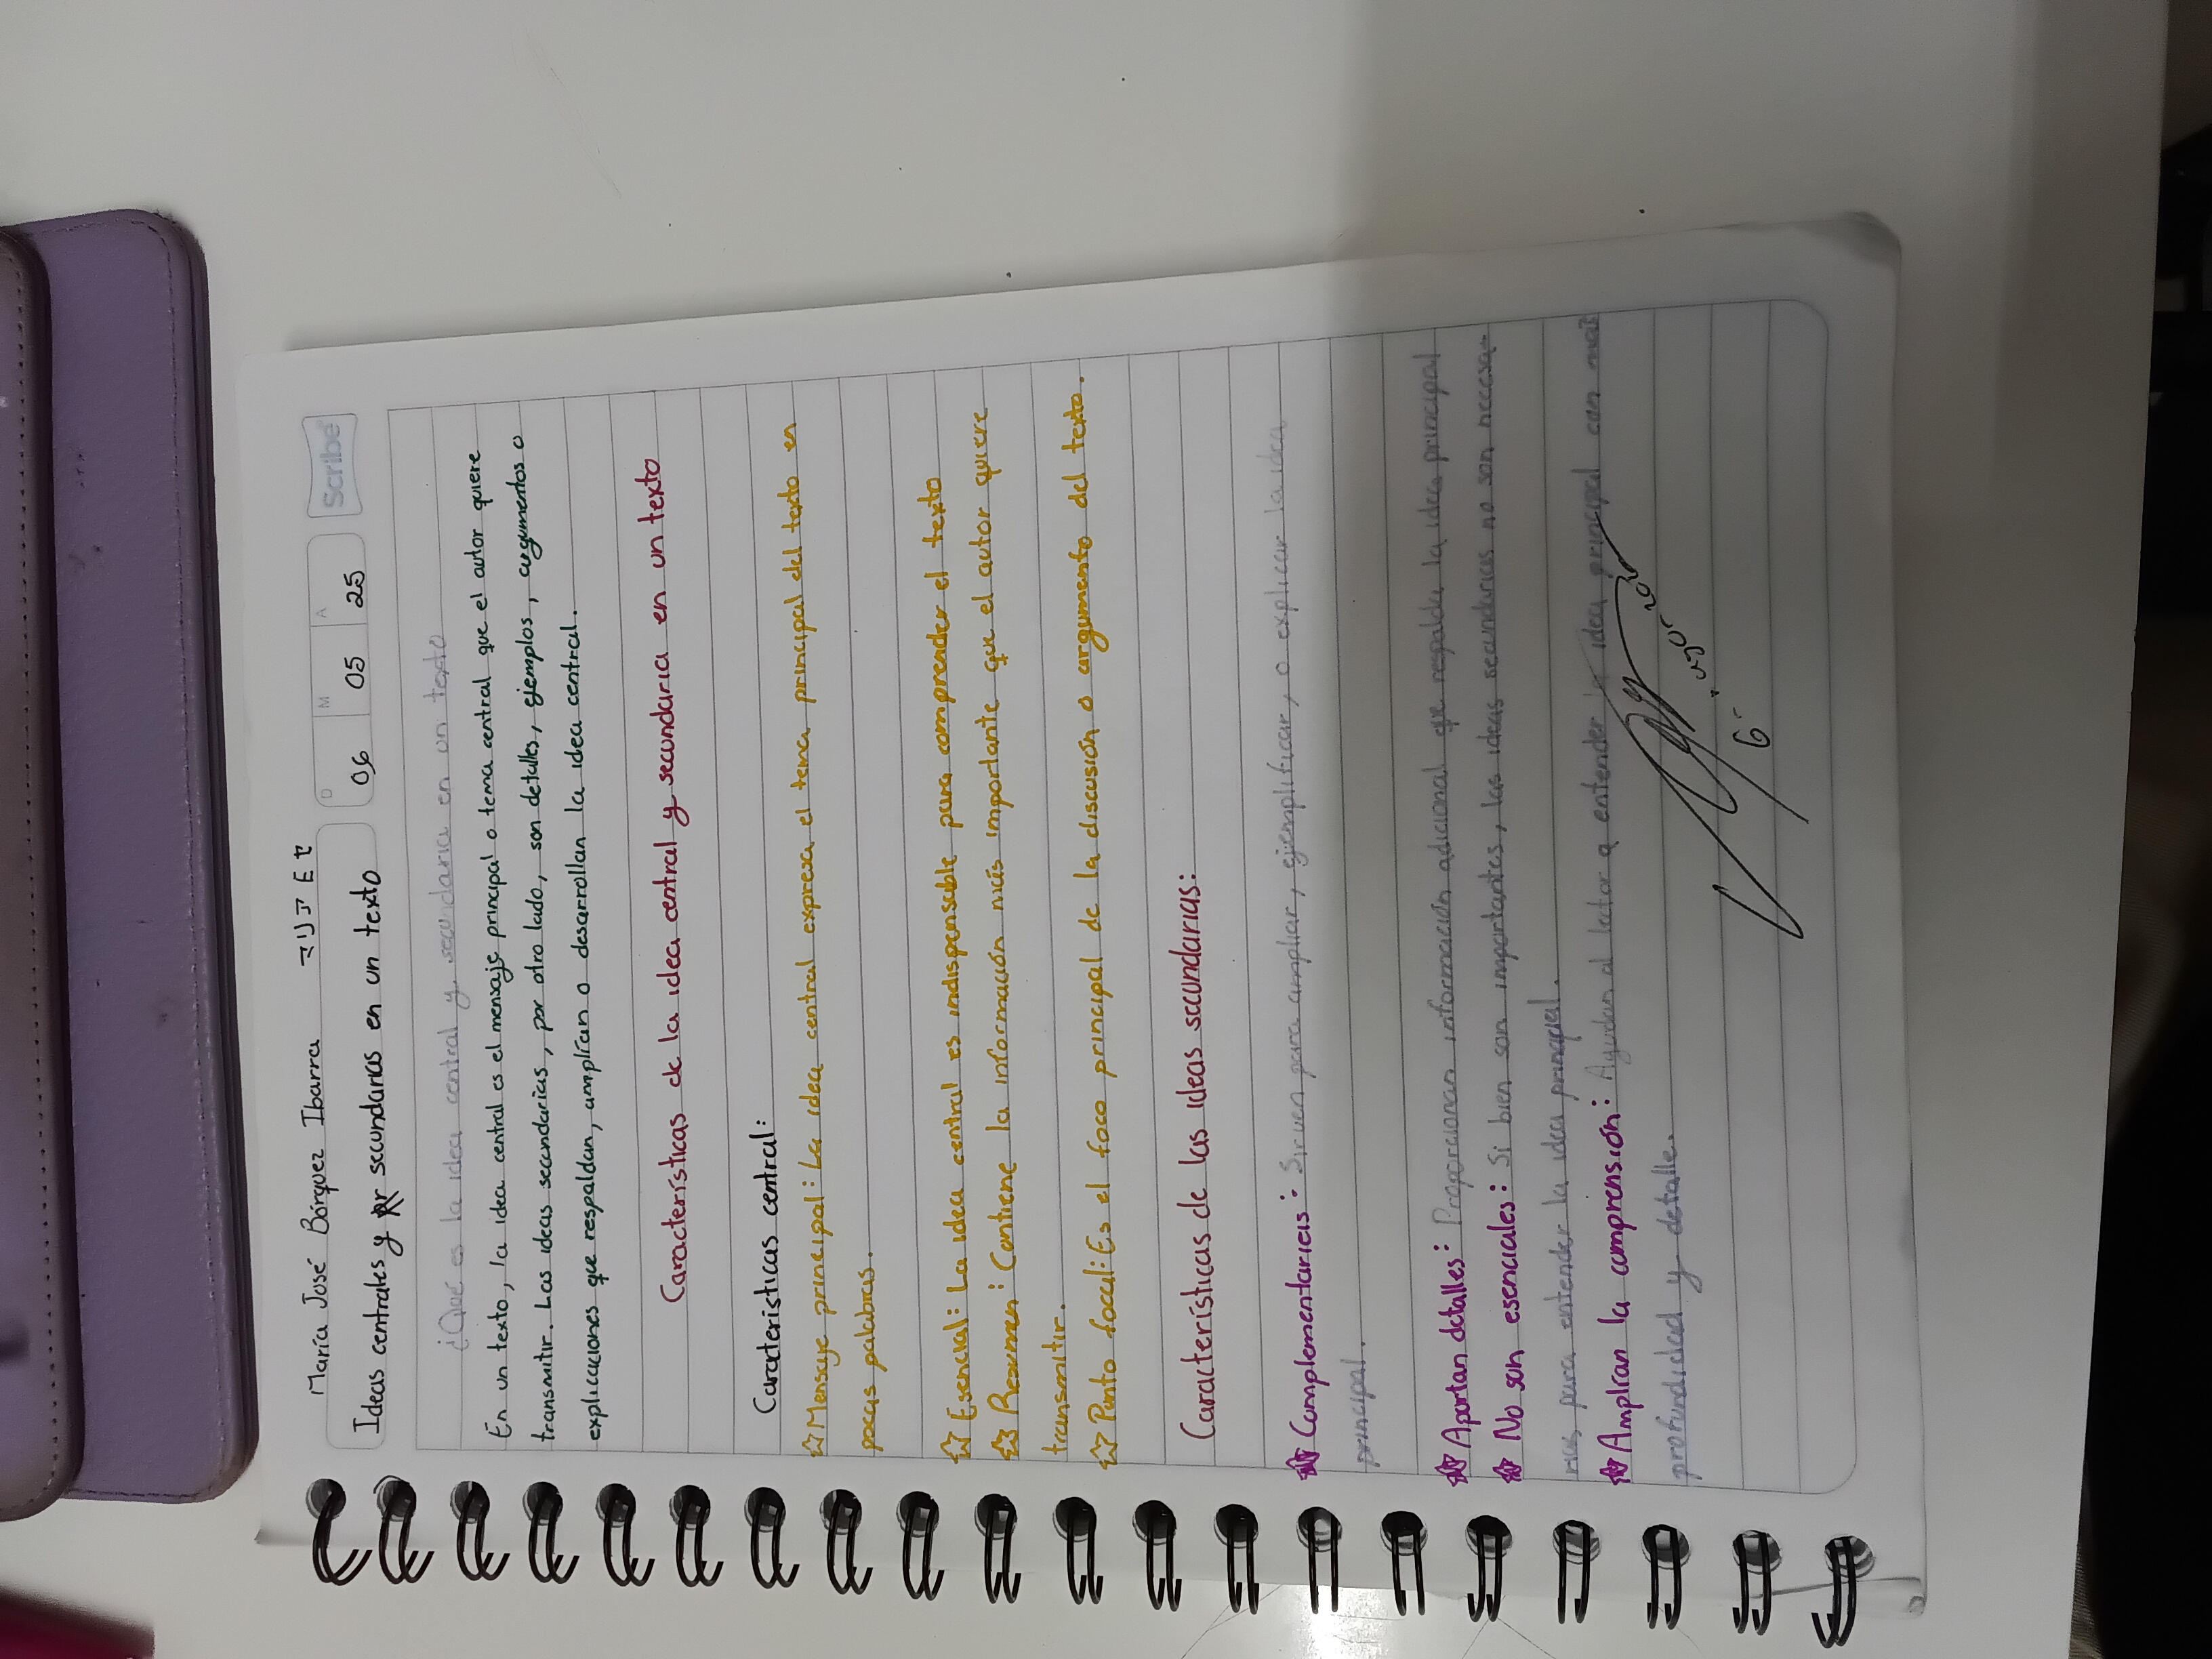 María José Bórquez Ibarra マリア E セ
Ideas centrales y secundarias en un texto
D 06 M 05 A 25
Scribe
¿Qué es la idea central y secundaria en un texto
En un texto, la idea central es el mensaje principal o tema central que el autor quiere
transmitir. Las ideas secundarias, por otro lado, son detalles, ejemplos, argumentos o
explicaciones que respaldan, amplían o desarrollan la idea central.
Características de la idea central y secundaria en un texto
Características central:
☆ Mensaje principal: La idea central expresa el tema principal del texto en
pocas palabras.
☆ Esencial: La idea central es indispensable para comprender el texto
☆ Resumen: Contiene la información más importante que el autor quiere
transmitir.
☆ Punto focal: Es el foco principal de la discusión o argumento del texto.
Características de las ideas secundarias:
☆ Complementarias: Sirven para ampliar, ejemplificar, o explicar la idea
principal.
☆ Aportan detalles: Proporcionan información adicional que respalda la idea principal
☆ No son esenciales: Si bien son importantes, las ideas secundarias no son necesa-
rias para entender la idea principal.
☆ Amplían la comprensión: Ayudan al lector a entender la idea principal con más
profundidad y detalle.